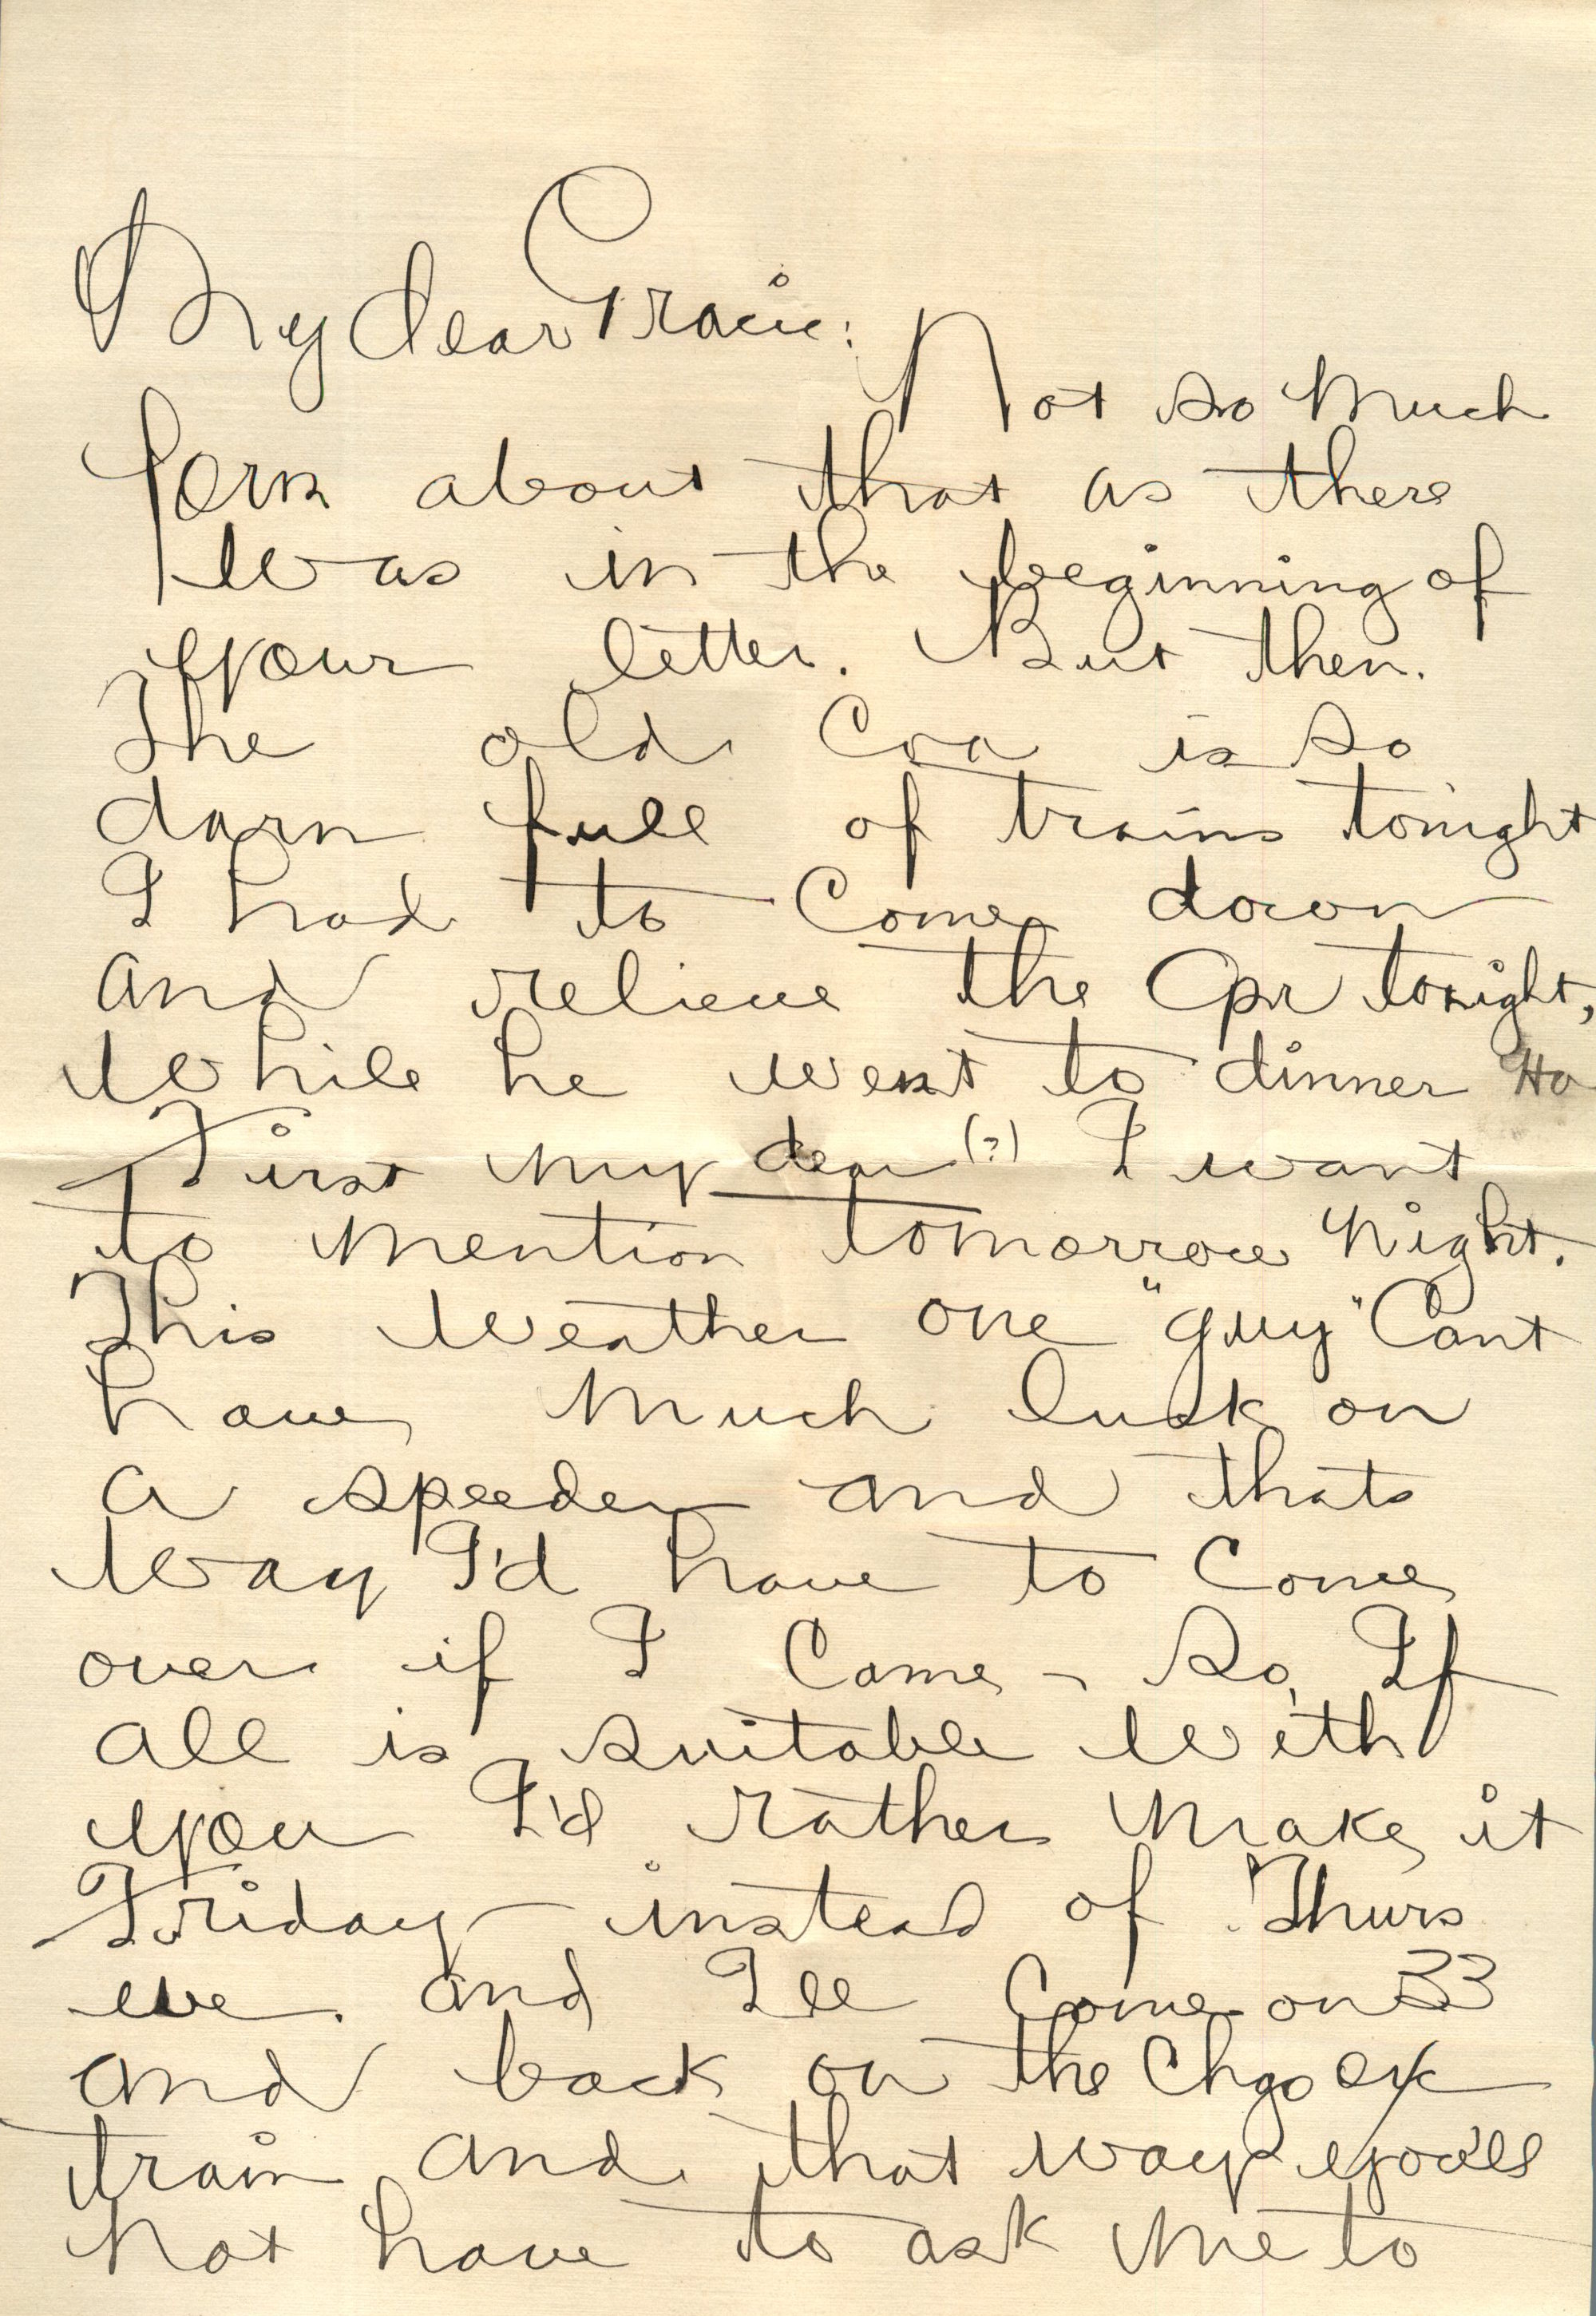 My dear Gracie:
Not so much
form about that as there
was in the beginning of
your letter. But then.
The old Coa is so
darn full of trains tonight
I had to come down
and relieve the Opr tonight,
while he went to dinner Ha
First my dear (?) I want
to mention tomorrow night.
This weather one "guy" Cant
have much luck on
a speeder and thats
way I'd have to come
over if I came - So, If
all is suitable with
you I'd rather make it
Friday instead of Thurs
eve. and Ill come on 33
and back on the Chgo Ex
train and that way you'll
not have to ask me to